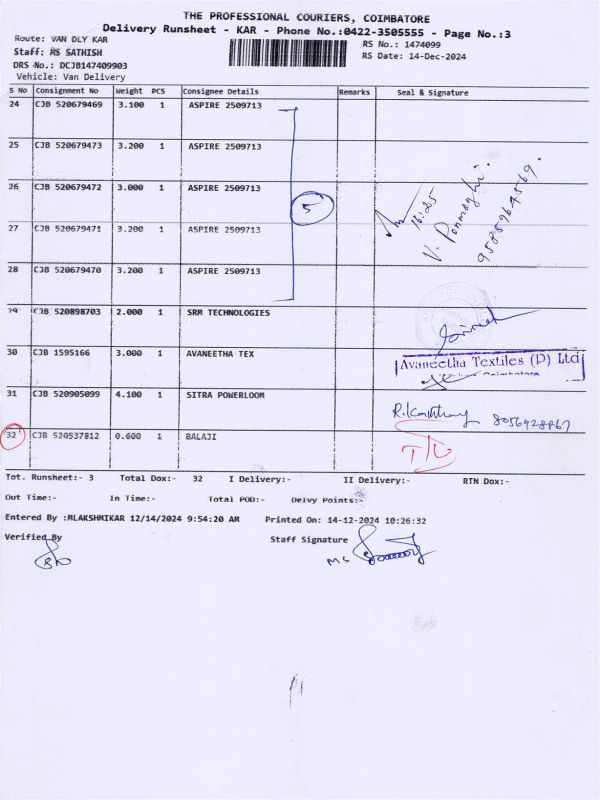 THE PROFESSIONAL COURIERS, COIMBATORE
Delivery Runsheet - KAR - Phone No.:0422-3505555 - Page No.:3
Route: VAN DLY KAR
RS No.: 1474099
Staff: MS SATHISH
RS Date: 14-Dec-2024
DRS No.: DCJB147409903
Vehicle: Van Delivery
S No Consignment No Weight PCS Consignee Details Remarks Seal & Signature
24 CJB 520679469 3.100 1 ASPIRE 2509713
25 CJB 520679473 3.200 1 ASPIRE 2509713
26 CJB 520679472 3.000 1 ASPIRE 2509713
5
16:25
V. Ponmozhi.
27 CJB 520679471 3.200 1 ASPIRE 2509713
28 CJB 520679470 3.200 1 ASPIRE 2509713
29 CJB 520898703 2.000 1 SRM TECHNOLOGIES
30 CJB 1595166 3.000 1 AVANEETHA TEX
Avaneetha Textiles (P) Ltd
31 CJB 520905099 4.100 1 SITRA POWERLOOM
32 CJB 520537812 0.600 1 BALAJI
Tot. Runsheet:- 3 Total Dox:- 32 I Delivery:- II Delivery:- RTN Dox:-
Out Time:- In Time:- Total POD:- Delvy Points:-
Entered By :MLAKSHMIKAR 12/14/2024 9:54:20 AM Printed On: 14-12-2024 10:26:32
Verified By Staff Signature
MS